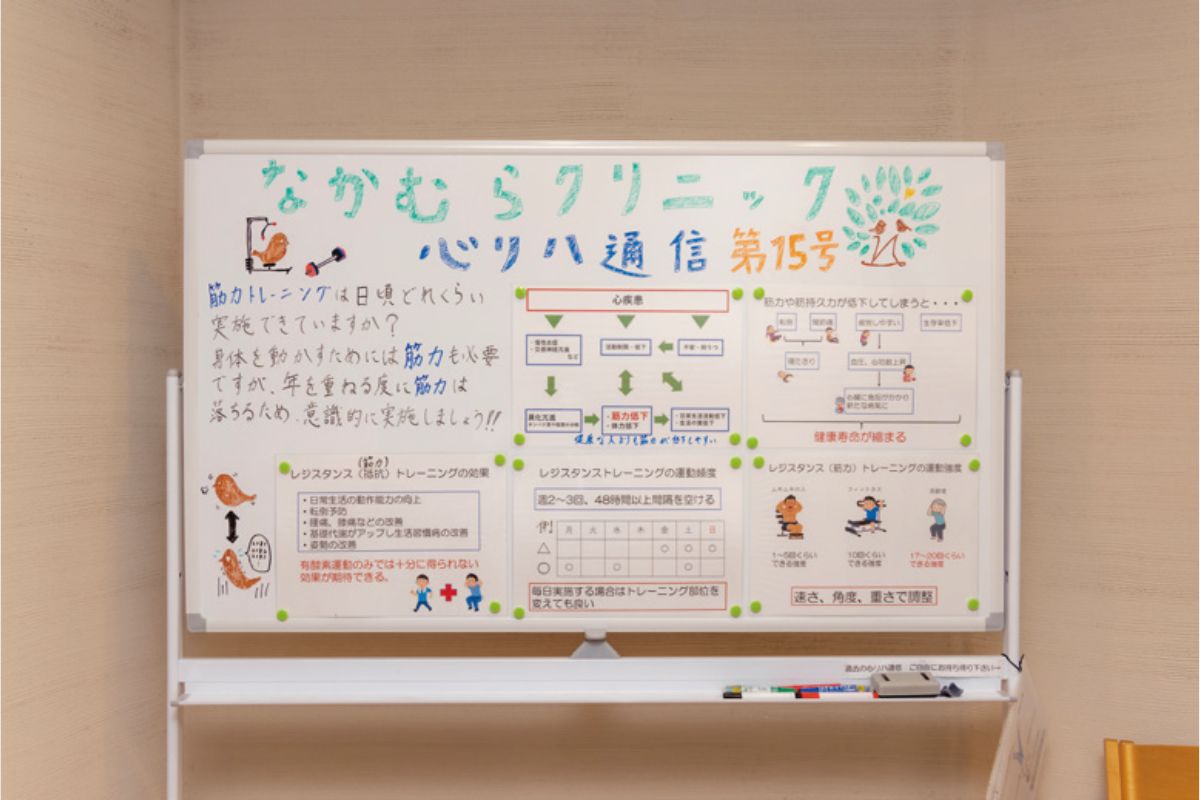 なかむらクリニック
心リハ通信 第15号
筋力トレーニングは日頃どれくらい
実施できていますか？
身体を動かすためには筋力も必要
ですが、年を重ねる度に筋力は
落ちるため、意識的に実施しましょう!!
心疾患
・慢性炎症
・交感神経亢進
など
活動制限・低下
不安・抑うつ
異化亢進
・筋力低下
・体力低下
・日常生活活動低下
・生活の質低下
健康な人よりも筋力が低下しやすい
筋力や筋持久力が低下してしまうと・・・
転倒
関節痛
疲労しやすい
生存率低下
寝たきり
血圧、心拍数上昇
心臓に負担がかかり
新たな病気に
健康寿命が縮まる
(筋力)
レジスタンス（抵抗）トレーニングの効果
・日常生活の動作能力の向上
・転倒予防
・腰痛、膝痛などの改善
・基礎代謝がアップし生活習慣病の改善
・姿勢の改善
有酸素運動のみでは十分に得られない
効果が期待できる。
レジスタンストレーニングの運動頻度
週2～3回、48時間以上間隔を空ける
例 月 火 水 木 金 土 日
△ ○ ○ ○
○ ○ ○ ○
毎日実施する場合はトレーニング部位を
変えても良い
レジスタンス（筋力）トレーニングの運動強度
ムキムキの人
フィットネス
高齢者
1～5回くらい
できる強度
10回くらい
できる強度
17～20回くらい
できる強度
速さ、角度、重さで調整
過去の心リハ通信 ご自由にお持ち帰り下さい→